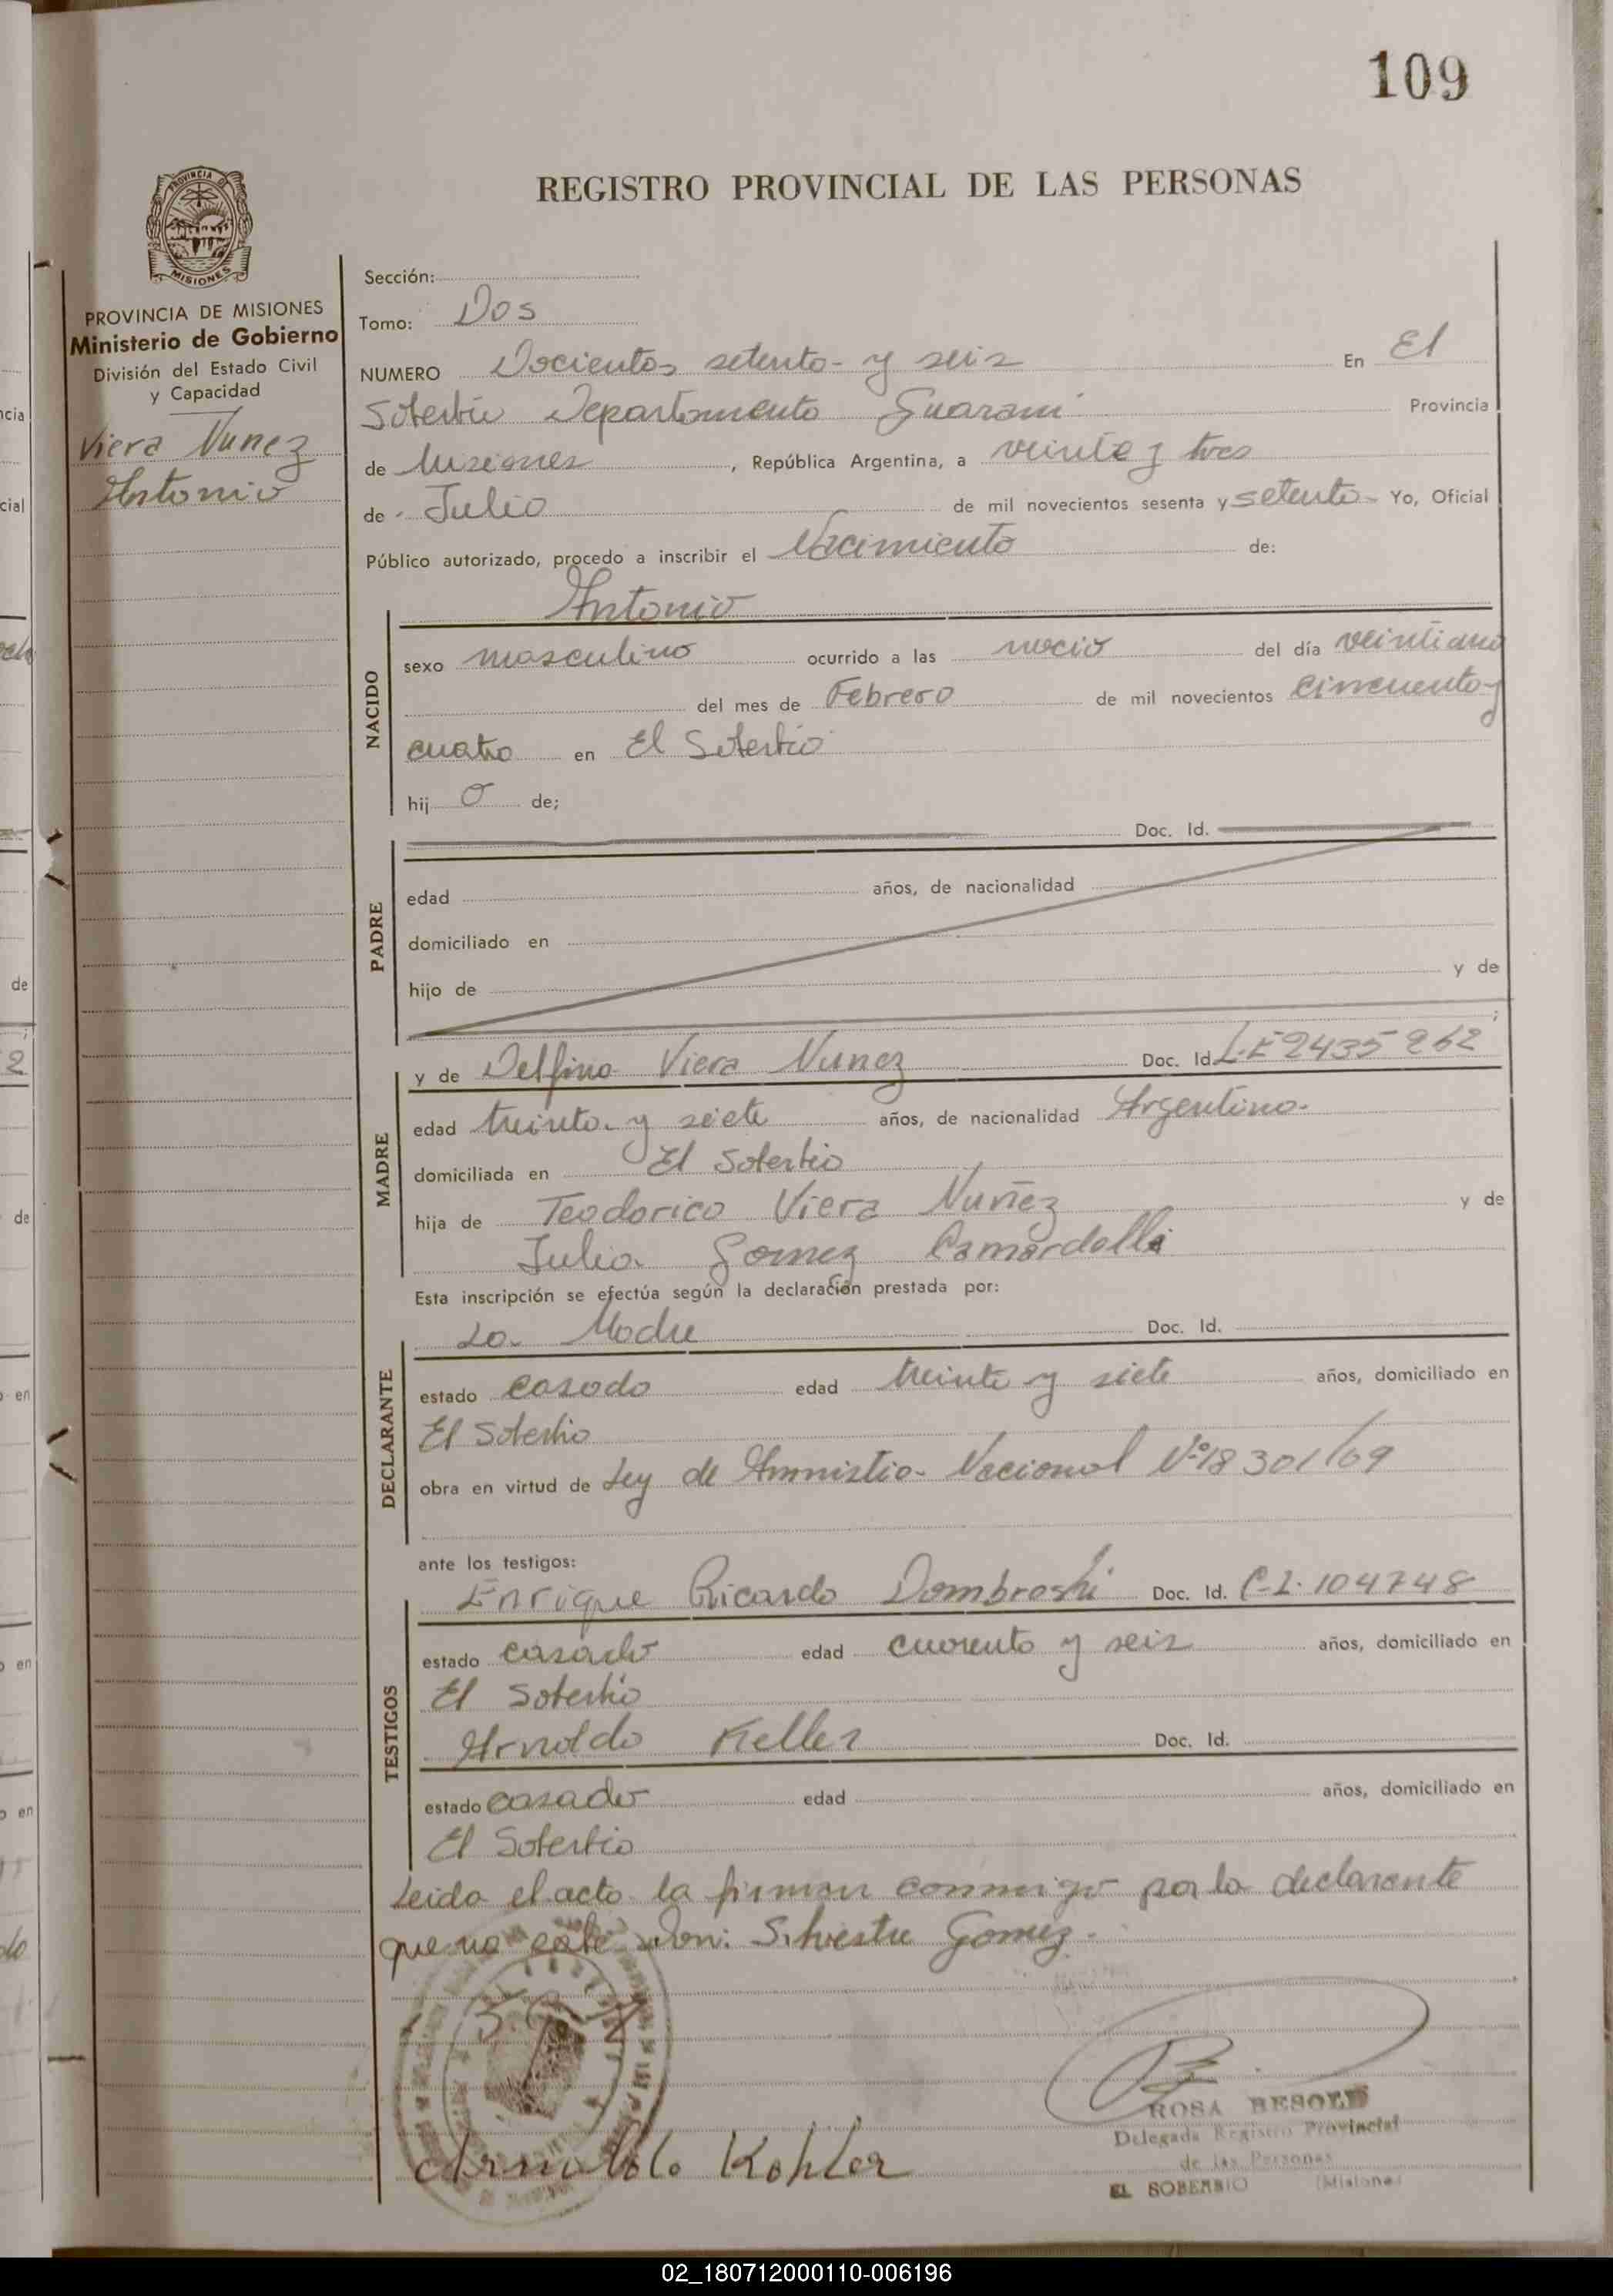 109
PROVINCIA DE
MISIONES
REGISTRO PROVINCIAL DE LAS PERSONAS
PROVINCIA DE MISIONES
Ministerio de Gobierno
División del Estado Civil
y Capacidad
Viera Nunez
Antonio
Sección:
Tomo: Dos
NUMERO Docientos setenta y seis En El
Soberbio Departamento Guarani Provincia
de Misiones, República Argentina, a veinte y tres
de Julio de mil novecientos sesenta y setenta Yo, Oficial
Público autorizado, procedo a inscribir el Nacimiento de:
NACIDO
Antonio
sexo masculino ocurrido a las nacio del día veintiuno
del mes de Febrero de mil novecientos cincuenta y
cuatro en El Soberbio
hij o de;
PADRE
Doc. Id.
edad años, de nacionalidad
domiciliado en
hijo de y de
;
MADRE
y de Delfina Viera Nunez Doc. Id. L.E 2435262
edad treinta y siete años, de nacionalidad Argentina
domiciliada en El Soberbio
hija de Teodorico Viera Nuñez y de
Julia Gomez Camardelli
Esta inscripción se efectúa según la declaración prestada por:
DECLARANTE
La Madre Doc. Id.
estado casado edad treinta y siete años, domiciliado en
El Soberbio
obra en virtud de Ley de Amnistia Nacional Nº 18301/69
ante los testigos:
TESTIGOS
Enrique Ricardo Dombroski Doc. Id. C.I. 104748
estado casado edad cuarenta y seis años, domiciliado en
El Soberbio
Arnoldo Keller Doc. Id.
estado casado edad años, domiciliado en
El Soberbio
Leida el acta la firman conmigo por la declarante
que no sabe Don: Silvestre Gomez
Arnoldo Kohler
ROSA BESOLD
Delegada Registro Provincial
de las Personas
EL SOBERBIO (Misiones)
02_180712000110-006196